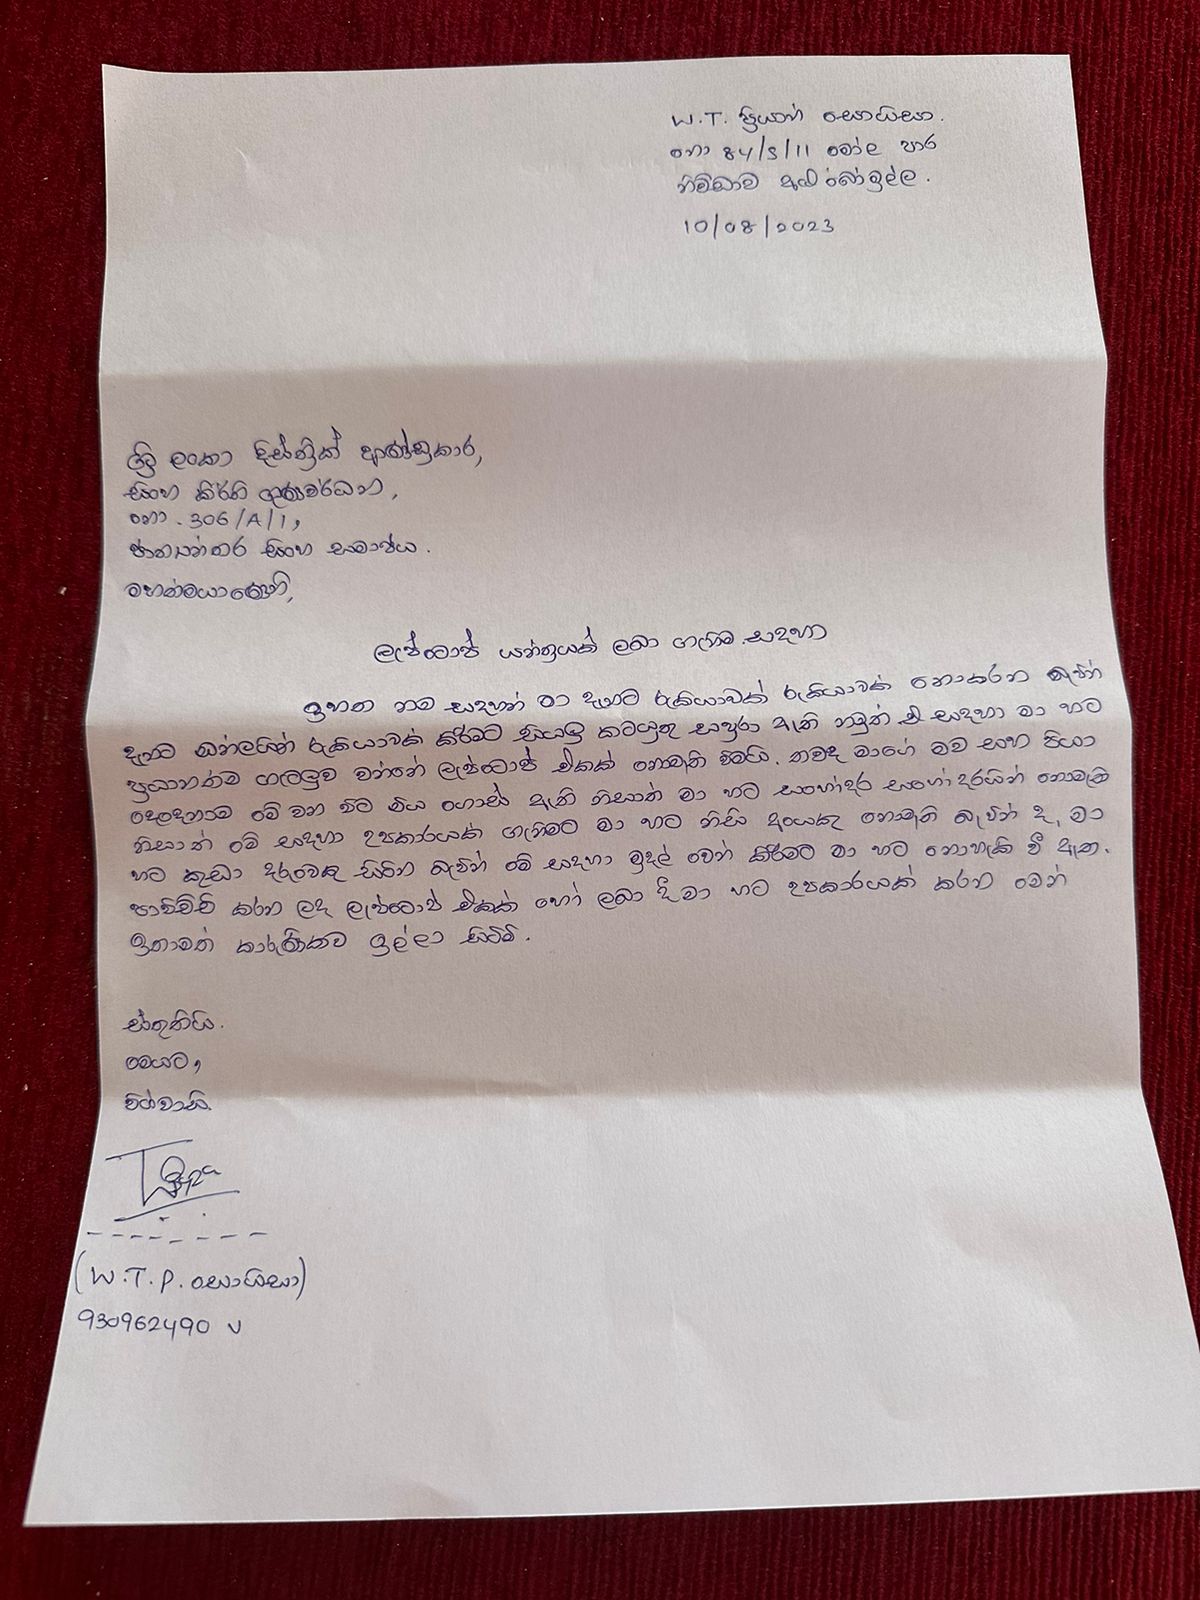 W.T. ප්‍රියාන් සොයිසා.
නො 84/S/11 මෝල පාර
10/08/2023
ශ්‍රී ලංකා දිස්ත්‍රික් ආණ්ඩුකාර,
සිංහ කිර්ති ගුණවර්ධන,
නො. 306/A/1,
ජාත්‍යන්තර සිංහ සමාජය.
මහත්මයාණෙනි,
ලැප්ටොප් යන්ත්‍රයක් ලබා ගැනීම සදහා
ඉහත නම සදහන් මා දැනට රුකියාවක් රුකියාවක් නොකරන බැවින්
දැනට ඔන්ලයින් රුකියාවක් කිරීමට සියලු කටයුතු සපුරා ඇති නමුත් ඒ සදහා මා හට
ප්‍රධානත්ම ගැටලුව වන්නේ ලැප්ටොප් එකක් නොමැති වීමයි. තවද මාගේ මව සහ පියා
දෙදෙනාම මේ වන විට මිය ගොස් ඇති නිසාත් මා හට සහෝදර සහෝදරයින් නොමැති
නිසාත් මේ සදහා උපකාරයක් ගැනීමට මා හට කිසි අයෙකු නොමැති බැවින් ද, මා
හට කුඩා දරුවෙකු සිටින බැවින් මේ සදහා මුදල් වෙන් කිරීමට මා හට නොහැකි වී ඇත.
පාවිච්චි කරන ලද ලැප්ටොප් එකක් හෝ ලබා දී මා හට උපකාරයක් කරන මෙන්
ඉතාමත් කාරුණිකව ඉල්ලා සිටිමි.
ස්තූතියි.
මෙයට,
විශ්වාසි.
(W.T.P. සොයිසා)
930962490 v